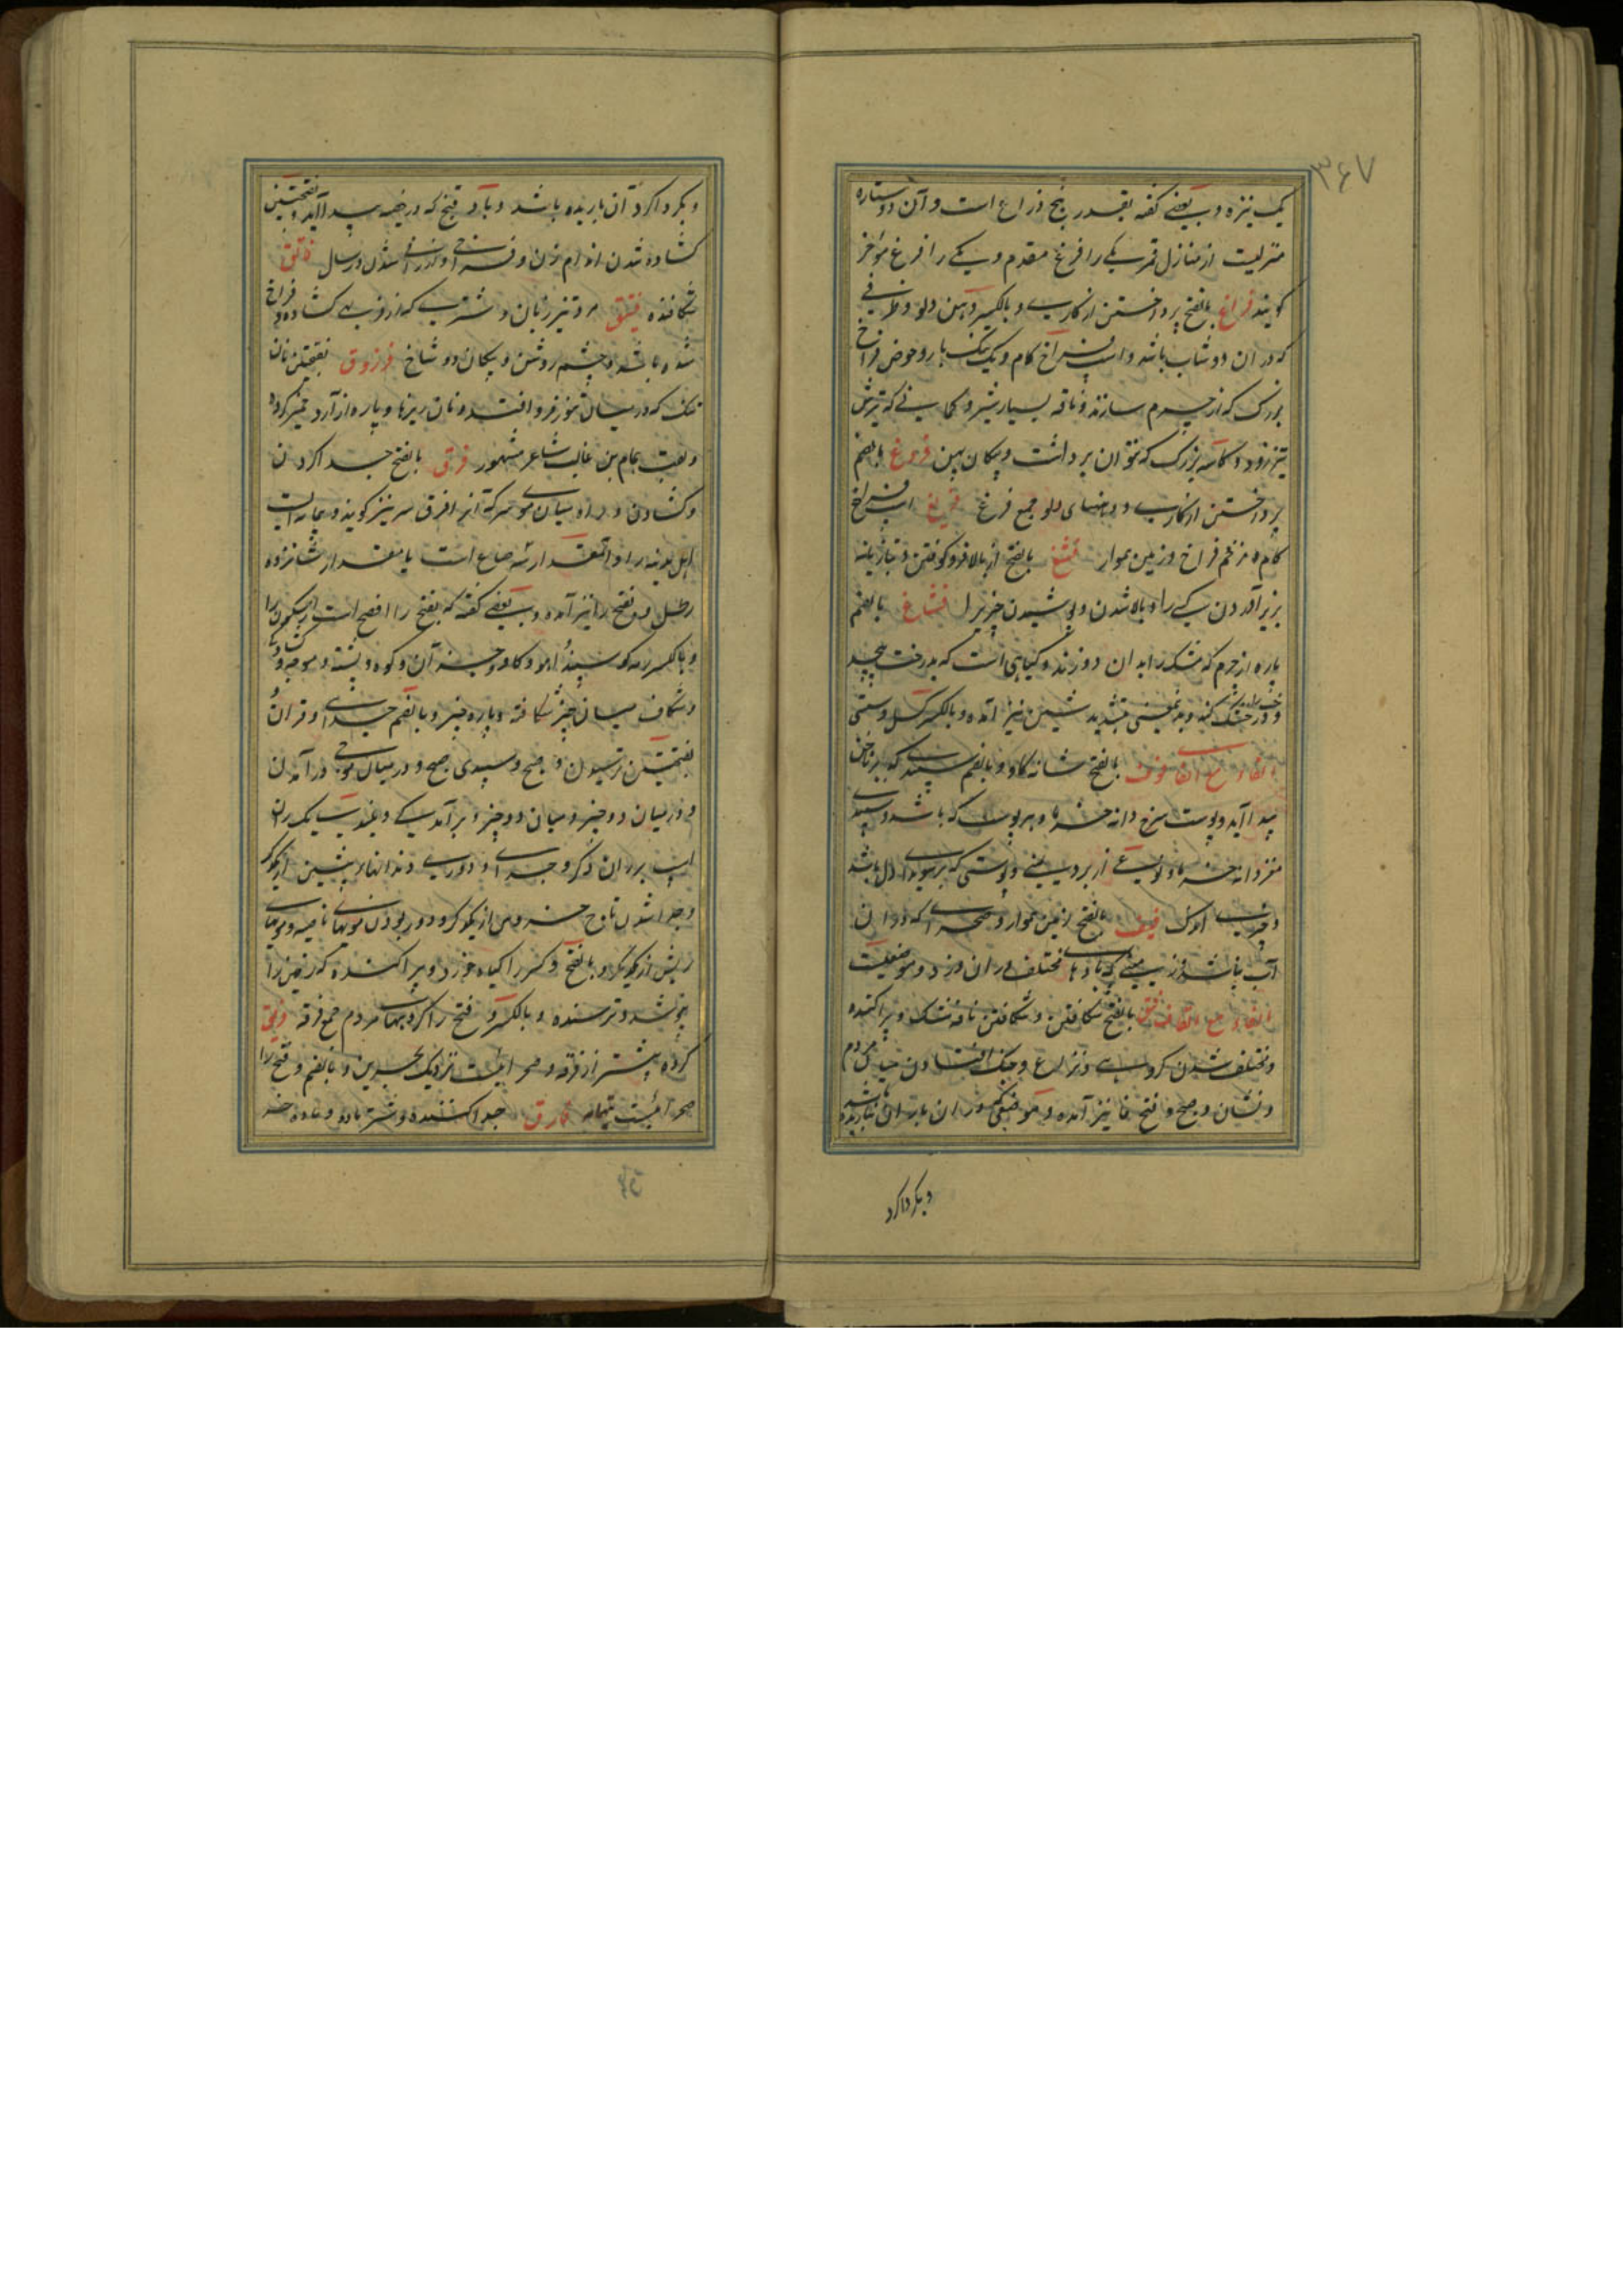 ۳۶۷
یک نیزه و بعضے گفته بقدر پنج ذراع است و آن دو ستاره
منزلیست از منازل قمر یکے را فرغ مقدم و یکے را فرغ موخر
گویند فراغ بالفتح پرداختن از کارے و بالکسر دهن دلو و ظرفے
که در ان دوشاب باشد و اسب فراخ گام و یک تنگ بار و حوض فراخ
بزرگ که از چرم سازند و ناقه بسیار شیر و کمانے که تیرش
تیز رود و کاسه بزرگ که نتوان برداشت و پیکان پهن فروغ بالضم
پرداختن از کارے و دهنهای دلو جمع فرغ فریغ اسپ فراخ
گام و زخم فراخ و زمین هموار فشغ بالفتح از بالا فرو کوفتن و تازیانه
بزیر آوردن کسے را و بالا شدن و پوشیدن چیزیرا فشاغ بالضم
پاره از چرم که مشک را بدان دوزند و گیاهی است که بدرخت پیچد
و درخت خشک کند و بدین معنی بتشدید شین نیز آمده و بالکسر کسل و سستی
بالفاء مع الفاء فوف بالفتح شانه گاو و بالضم سپیدے که بر ناخن
پیدا آید و پوست سرخ دانه خرما و هر پوست که باشد و سپیدے
مغز دانه خرما و نوعے از برد یمنے و پوستی که بر سویدای دل باشد
و چیزے اندک فیف بالفتح زمین هموار و صحرائے که در ان
آب نباشد و زمینے که بادهاے مختلف در ان وزد و موضعیست
الفاء مع القاف فتق بالفتح شکافتن و شکافتن نافه مشک و پراکنده
و مختلف شدن گروهے و نزاع و جنگ افتادن میان مردم
و نشان و صبح و فتح تا نیز آمده و موضعی که در ان باران نباریده باشد
و گرداگرد
و گرداگرد آن باریده باشد و باد فتح که در خصیه پیدا آید و بفتحتین
کشاده شدن اندام زن و فراخی و ارزانی شدن در سال فاتق
شکافنده فتیق مرد تیز زبان و شترے که از فربهے کشاده و فراخ
شده باشد و چشم روشن و پیکان دو شاخ فرزدق بفتحتین نان
تنک که در میان تنور فرو افتد و نان ریزها و پاره از آرد خمیر کرده
و لقب همام بن غالب شاعر مشهور فرق بالفتح جدا کردن
و کشادن و راه میان موے سر که آنرا فرق سر نیز گویند و پیمانه ایست
اهل مدینه را و آن مقدار سه صاع است یا مقدار شانزده
رطل و بفتح را نیز آمده و بعضے گفته که بفتح را افصح است از سکون را
و بالکسر رمه گوسپند و آهو و گاو و جز آن و کوه و پشته و موجه دریا
و شکاف میان چیز شکافته و پاره چیز و بالضم جدائے و قران
بفتحتین ترسیدن و صبح و سپیدی صبح و در میان موجے درآمدن
و در میان دو چیز و میان دو چیز و برآمدگے و بلندے یک ران
اسپ بر ران دگر و جدائے و دورے دندانهاے پیشین از یکدگر
و جدا شدن تاج خروس از یکدگر و دور بودن مویهاے ناصیه و مویهاے
ریش از یکدیگر و بالفتح و کسر را گیاه خورد و پراکنده که زمین را
نپوشد و ترسنده و بالکسر و فتح را گروههاے مردم جمع فرقه فریق
گروه بیشتر از فرقه و صحرائیست نزدیک بحرین و بالضم و فتح را
صحرائیست بتهامه فارق جدا کننده و شتر ماده و ماده خر